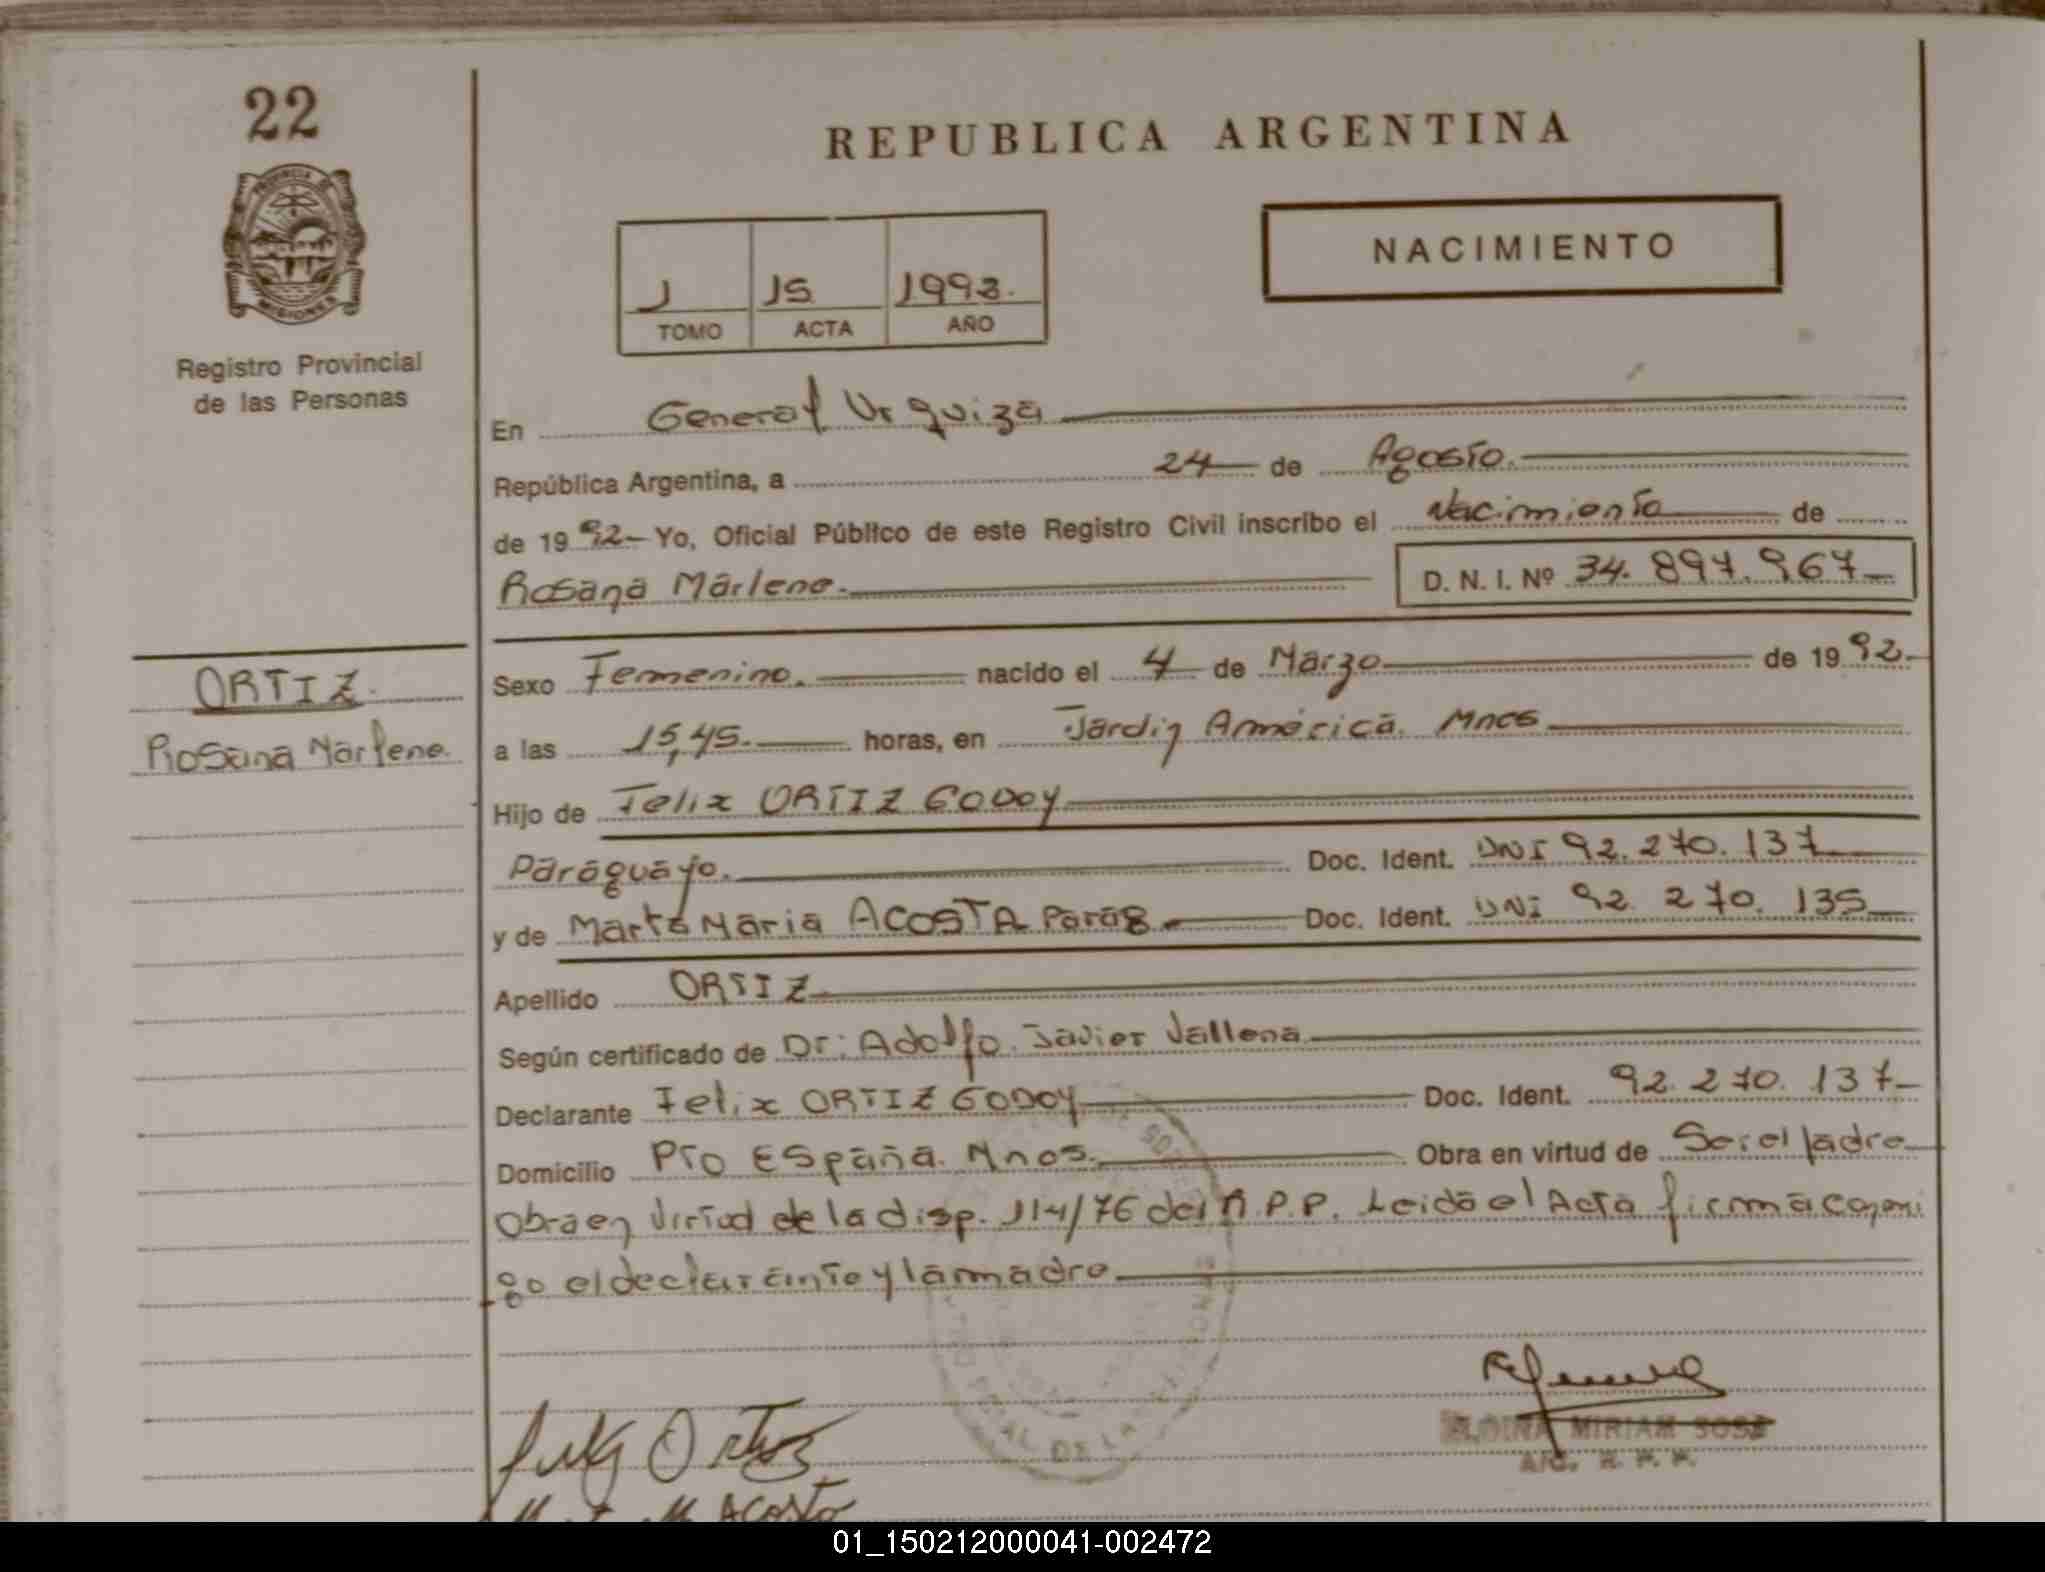 22
REPUBLICA ARGENTINA
PROVINCIA DE
MISIONES
NACIMIENTO
1 15 1992.
TOMO ACTA AÑO
Registro Provincial
de las Personas
En General Urquiza
República Argentina, a 24 de Agosto.
de 19 92 Yo, Oficial Público de este Registro Civil inscribo el Nacimiento de
Rosana Marlene. D. N. I. Nº 34.897.967
ORTIZ.
Rosana Marlene.
Sexo Femenino. nacido el 4 de Marzo de 19 92.
a las 15,45. horas, en Jardin América. Mnes
Hijo de Felix ORTIZ GODOY
Paraguayo. Doc. Ident. DNI 92.270.137
y de Marta Maria ACOSTA Parag. Doc. Ident. DNI 92.270.135
Apellido ORTIZ
Según certificado de Dr: Adolfo Javier Vallena
Declarante Felix ORTIZ GODOY Doc. Ident. 92.270.137
Domicilio Pto España. Mnes. Obra en virtud de Ser el Padre
Obra en virtud de la disp. 114/76 del R.P.P. Leida el Acta firma conmi
go el declarante y la madre
Ortiz
M. ACOSTA
MIRIAM SOSA
A/C. R. P. P.
01_150212000041-002472